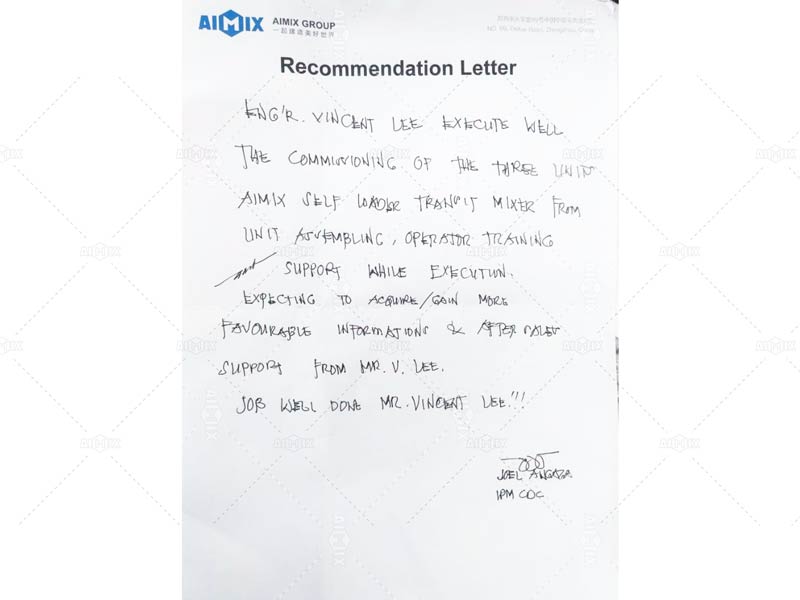 AIMIX AIMIX GROUP
一起建造美好世界
Recommendation Letter
ENG'R. VINCENT LEE EXECUTE WELL
THE COMMISSIONING OF THE THREE UNIT
AIMIX SELF LOADER TRANSIT MIXER FROM
UNIT ASSEMBLING, OPERATOR TRAINING
SUPPORT WHILE EXECUTION.
EXPECTING TO ACQUIRE/GAIN MORE
FAVOURABLE INFORMATIONS & AFTER SALES
SUPPORT FROM MR. V. LEE.
JOB WELL DONE MR. VINCENT LEE!!!
JOEL
IPM CDC